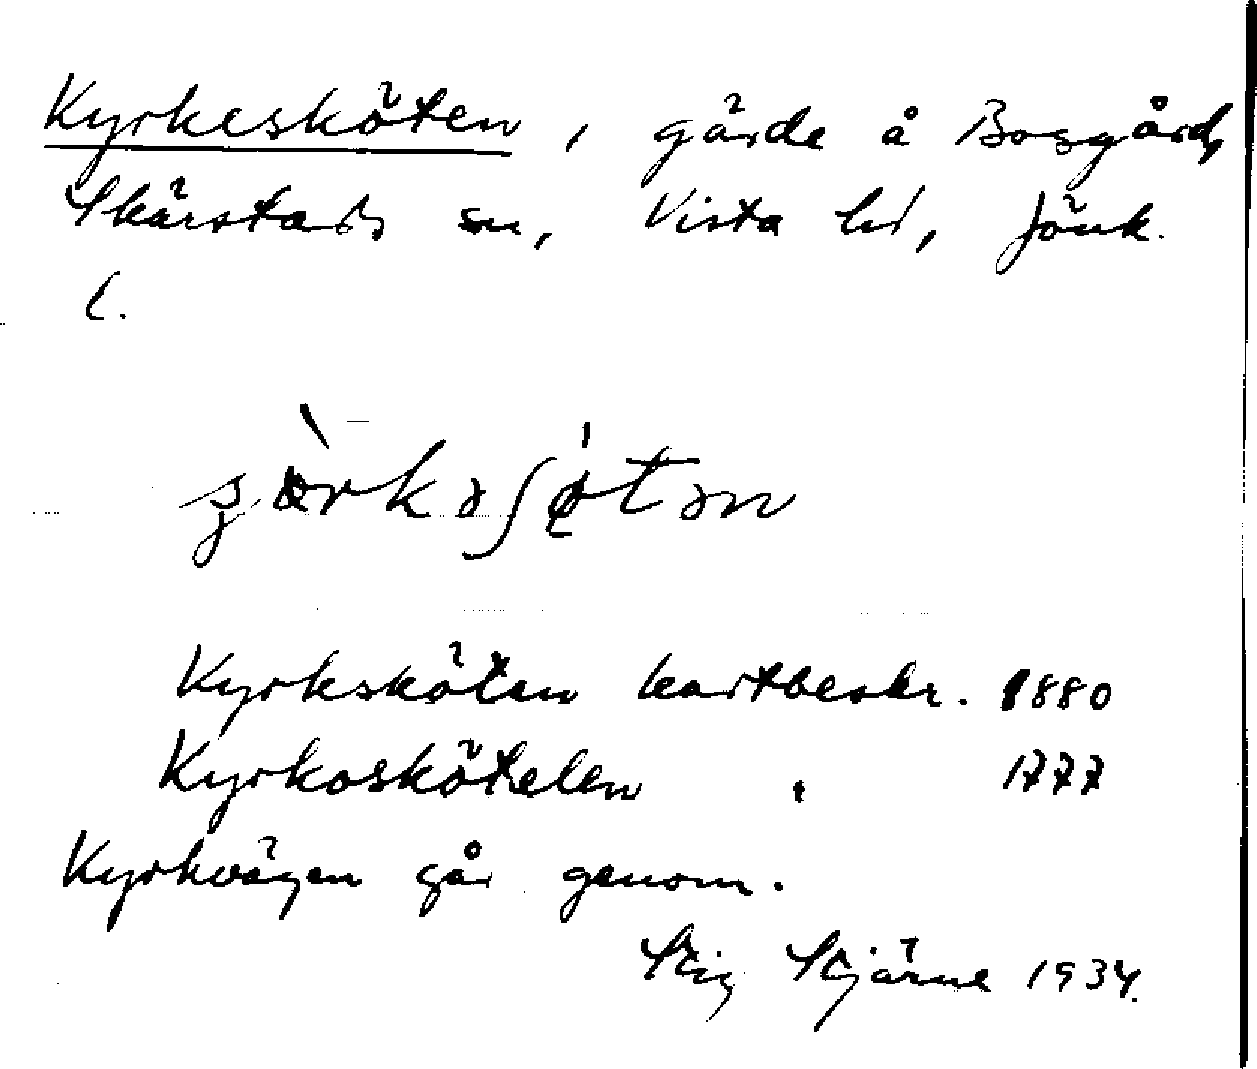 Kyrkesköten, gärde å Bosgård,
Skärstads sn, Vista hd, Jönk.
l.
Kyrksköten kartbeskr. 1880
Kyrkoskötelen " 1777
Kyrkvägen går genom.
Stig Stjärne 1934.